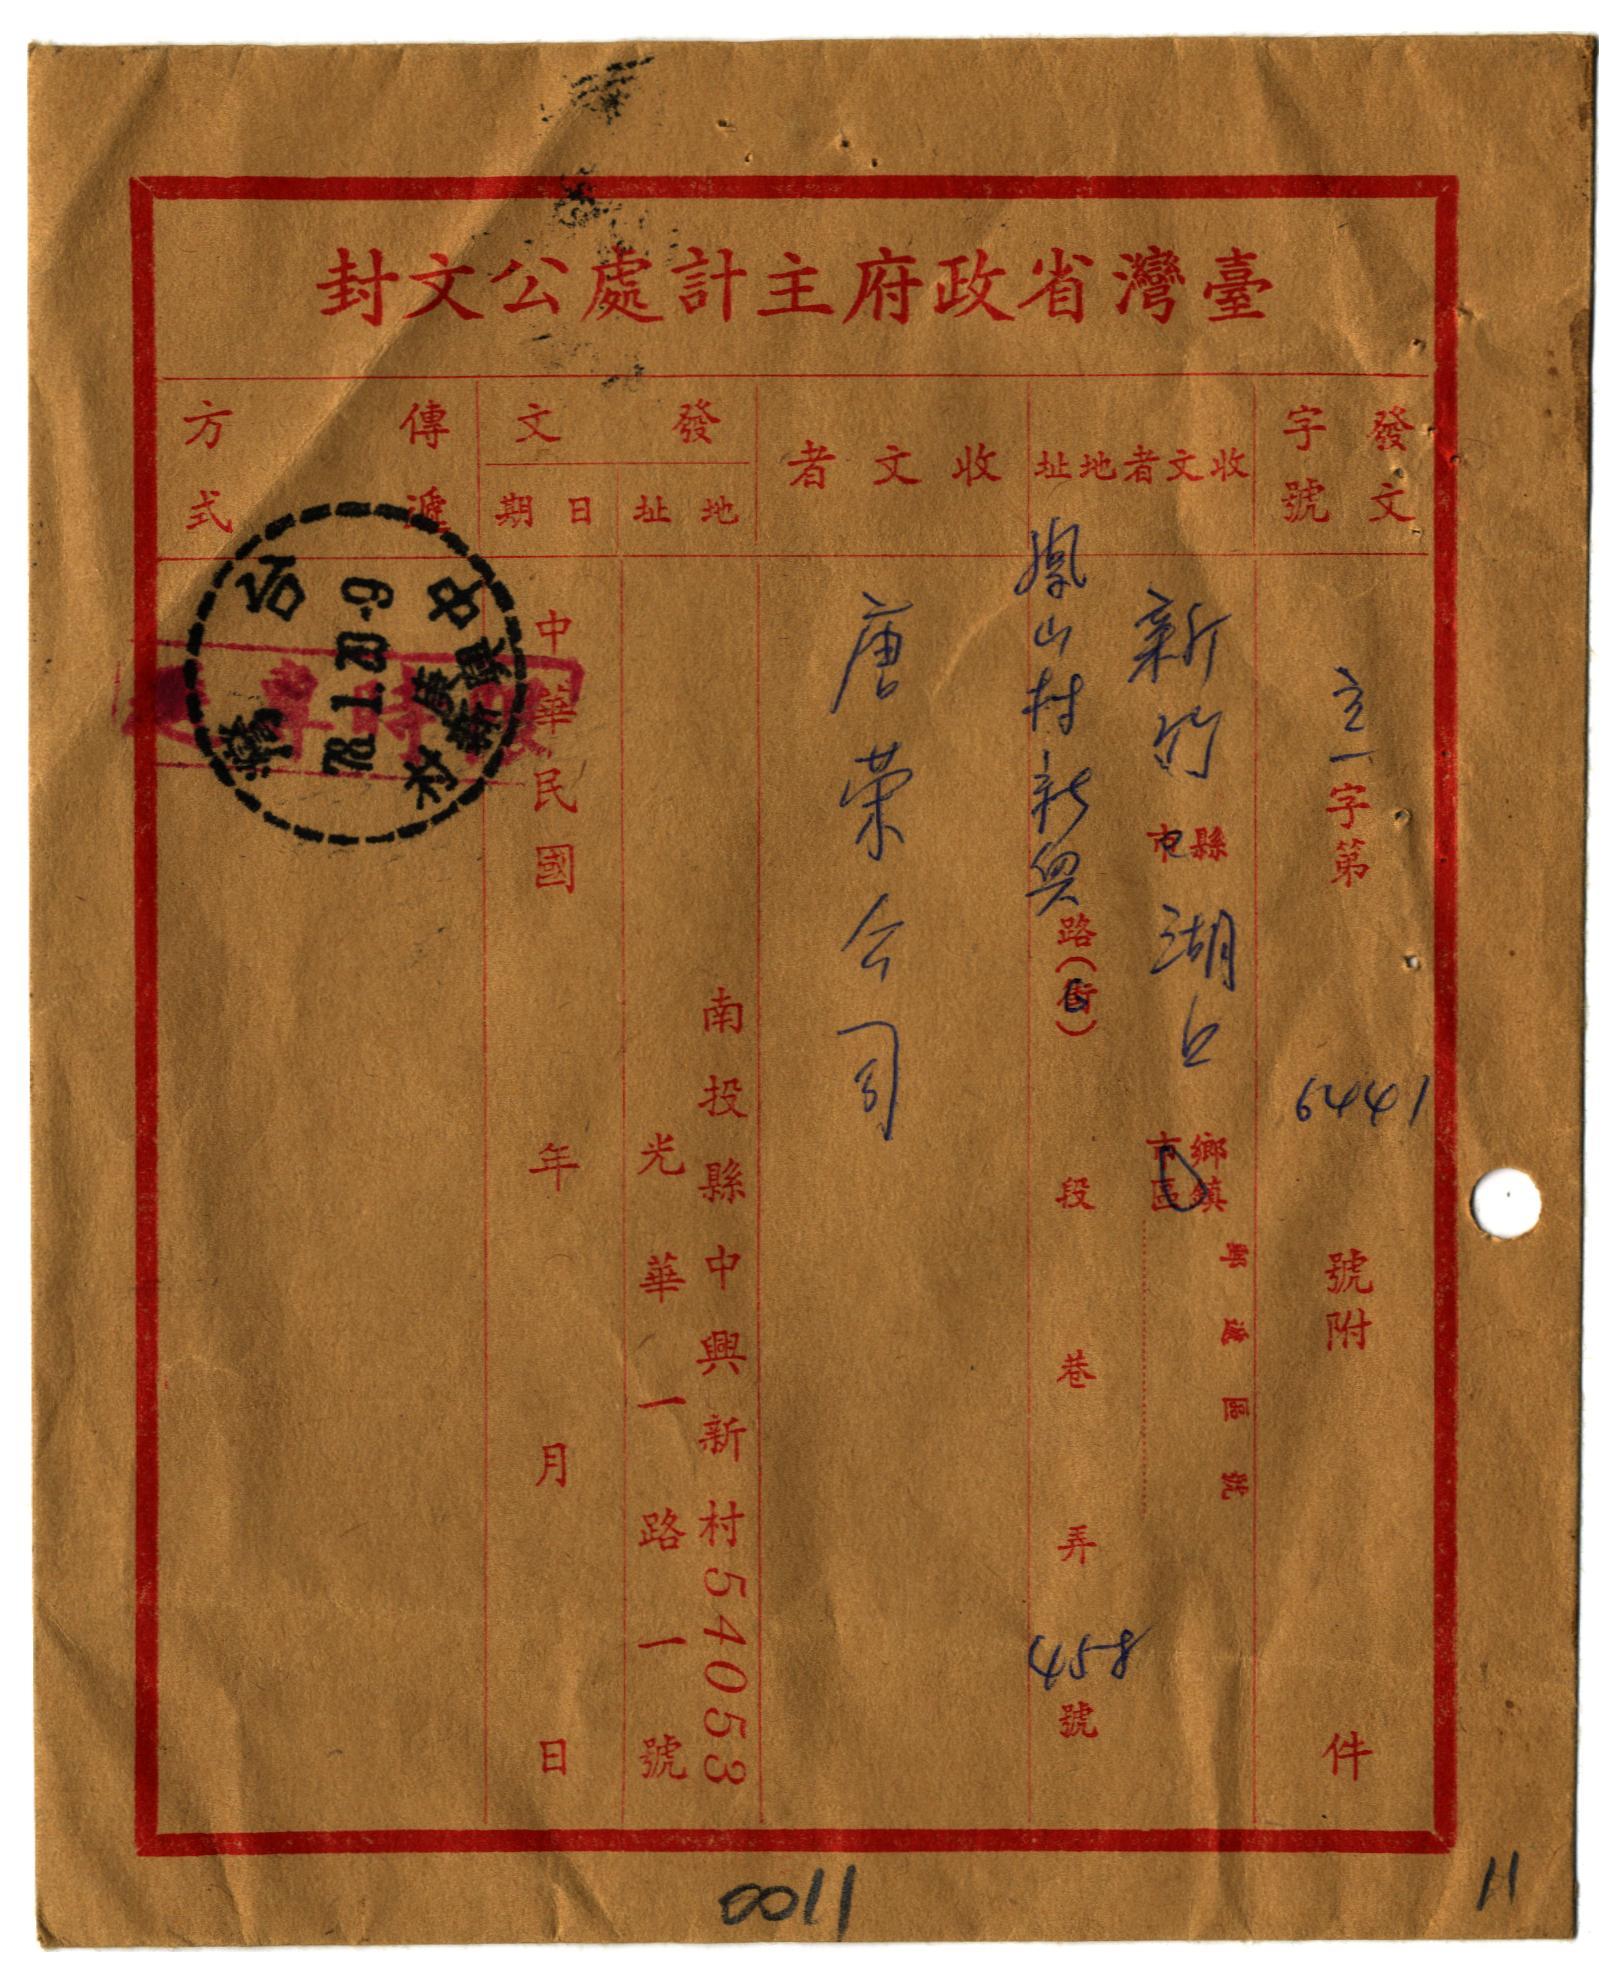 臺灣省政府主計處公文封
發文字號
主一字第6441號附件
收文者地址
新竹縣市湖口鄉鎮市區
郵遞區號
鳳山村新興路(街)段巷弄458號
收文者
唐榮公司
發文
地址
南投縣中興新村540053
光華一路一號
日期
中華民國年月日
傳遞方式
台灣
78.1.20.-9
中興新村
0011
11